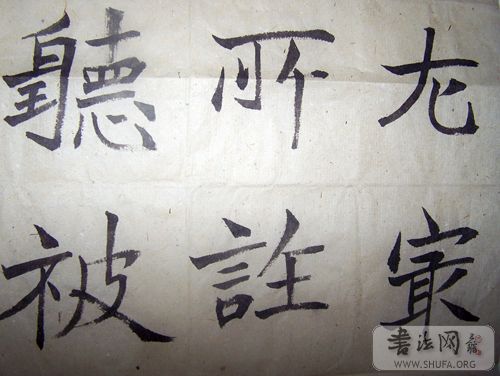 尤㝡
所註
聽被
書法网
WWW.SHUFA.ORG